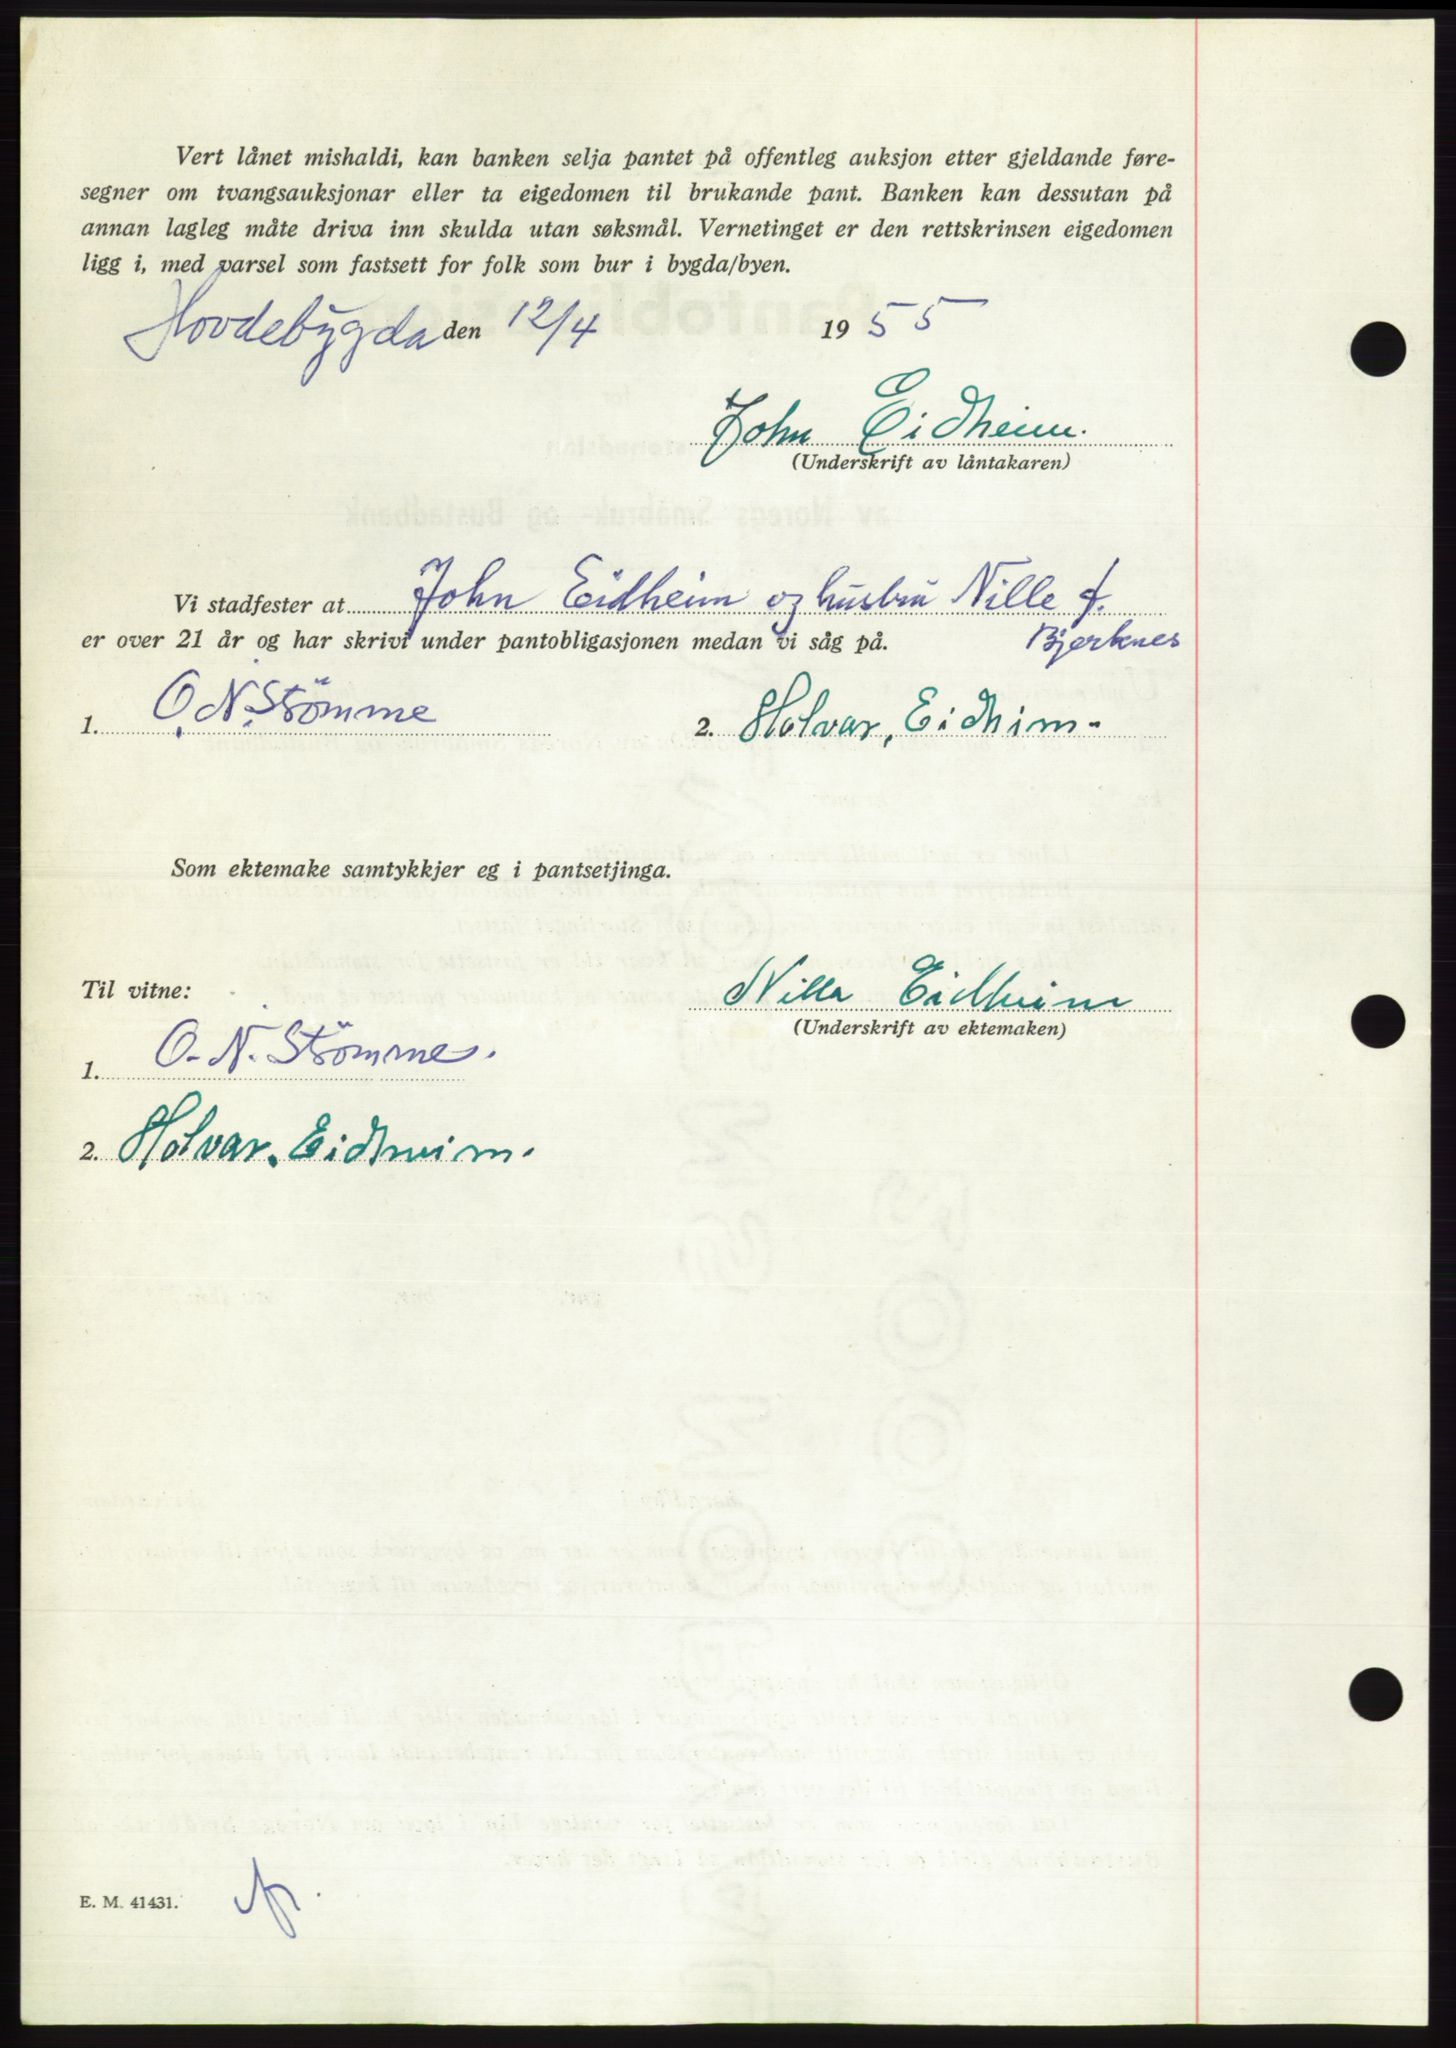 Vert lånet mishaldi, kan banken selja pantet på offentleg auksjon etter gjeldande føre-
segner om tvangsauksjonar eller ta eigedomen til brukande pant. Banken kan dessutan på
annan lagleg måte driva inn skulda utan søksmål. Vernetinget er den rettskrinsen eigedomen
ligg i, med varsel som fastsett for folk som bur i bygda/byen.
Hovdebygda den 12/4 1955
John Eidheim.
(Underskrift av låntakaren)
Vi stadfester at John Eidheim og husbru Nille f.
er over 21 år og har skrivi under pantobligasjonen medan vi såg på. Bjerknes
1. O. N. Strömme 2. Holvar, Eidhim.
Som ektemake samtykkjer eg i pantsetjinga.
Til vitne: Nilla Eidheim
(Underskrift av ektemaken)
1. O. N. Strömme.
2. Holvar. Eidheim.
E. M. 41431.